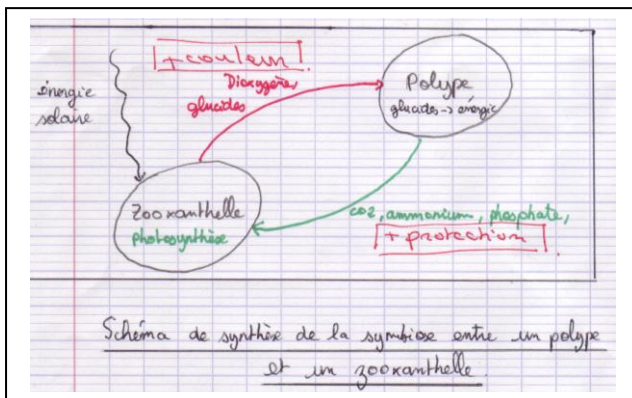 + couleur
Dioxygène,
glucides
énergie
solaire
Polype
glucides -> énergie
Zooxanthelle
photosynthèse
co2, ammonium, phosphate,
+ protection
Schéma de synthèse de la symbiose entre un polype
et un zooxanthelle.